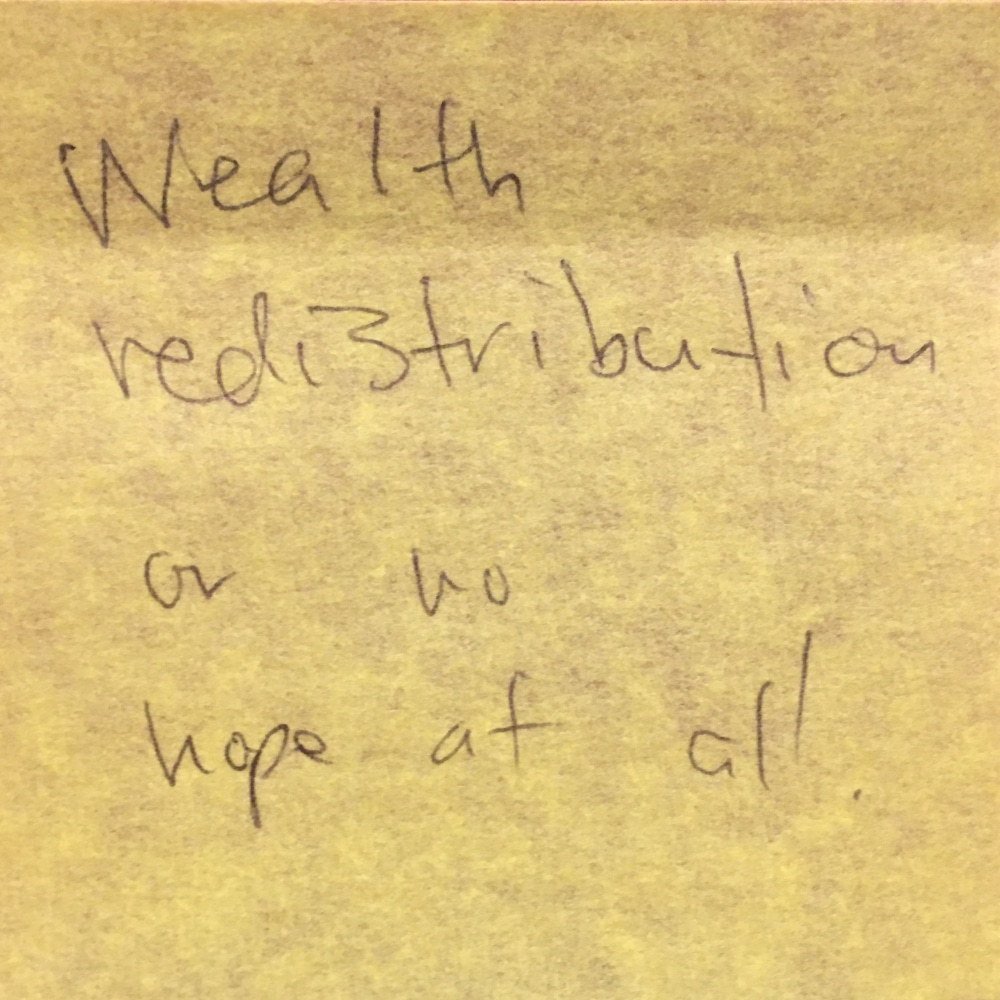 Wealth
redistribution
or no
hope at all.